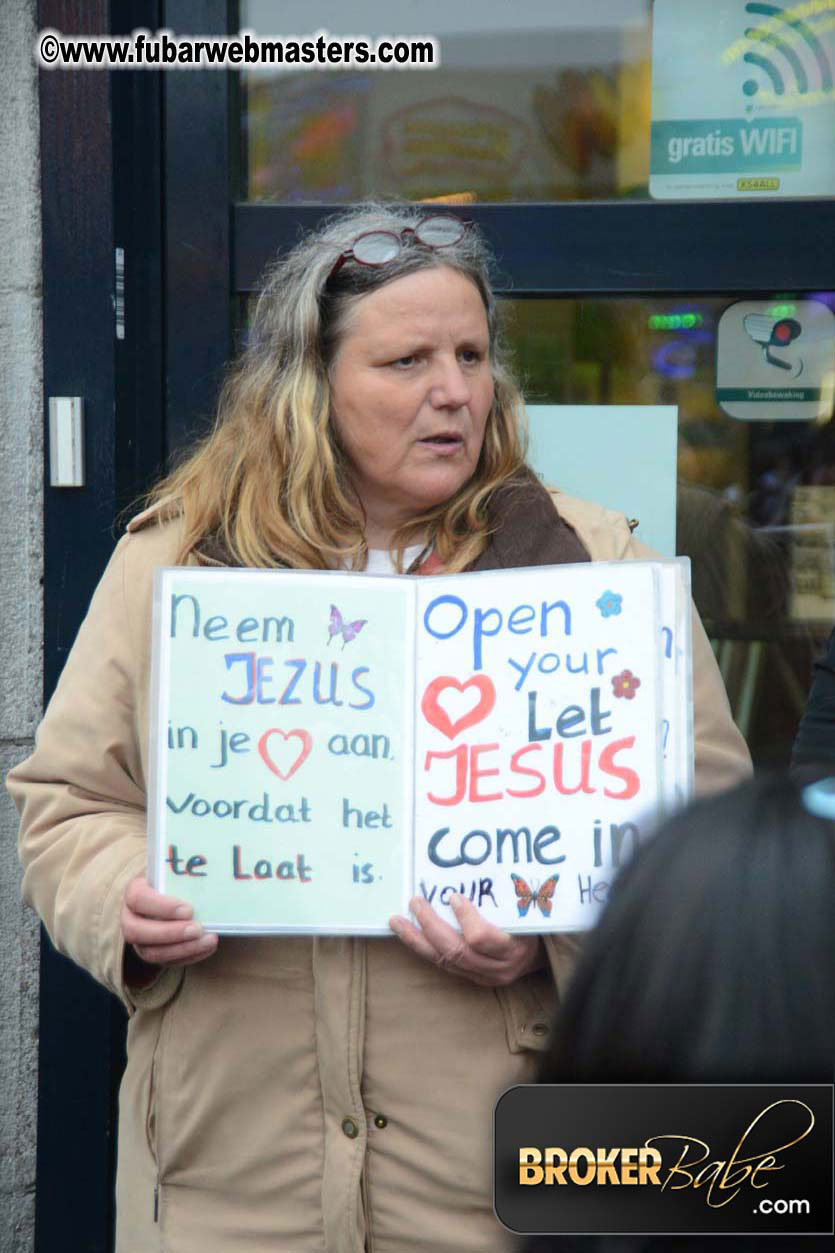 ©www.fubarwebmasters.com
gratis WIFI
XS4ALL
Videobewaking
Neem
JEZUS
in je aan,
voordat het
te Laat is.
Open
your
Let
JESUS
come in
YOUR
BROKER Babe
.com